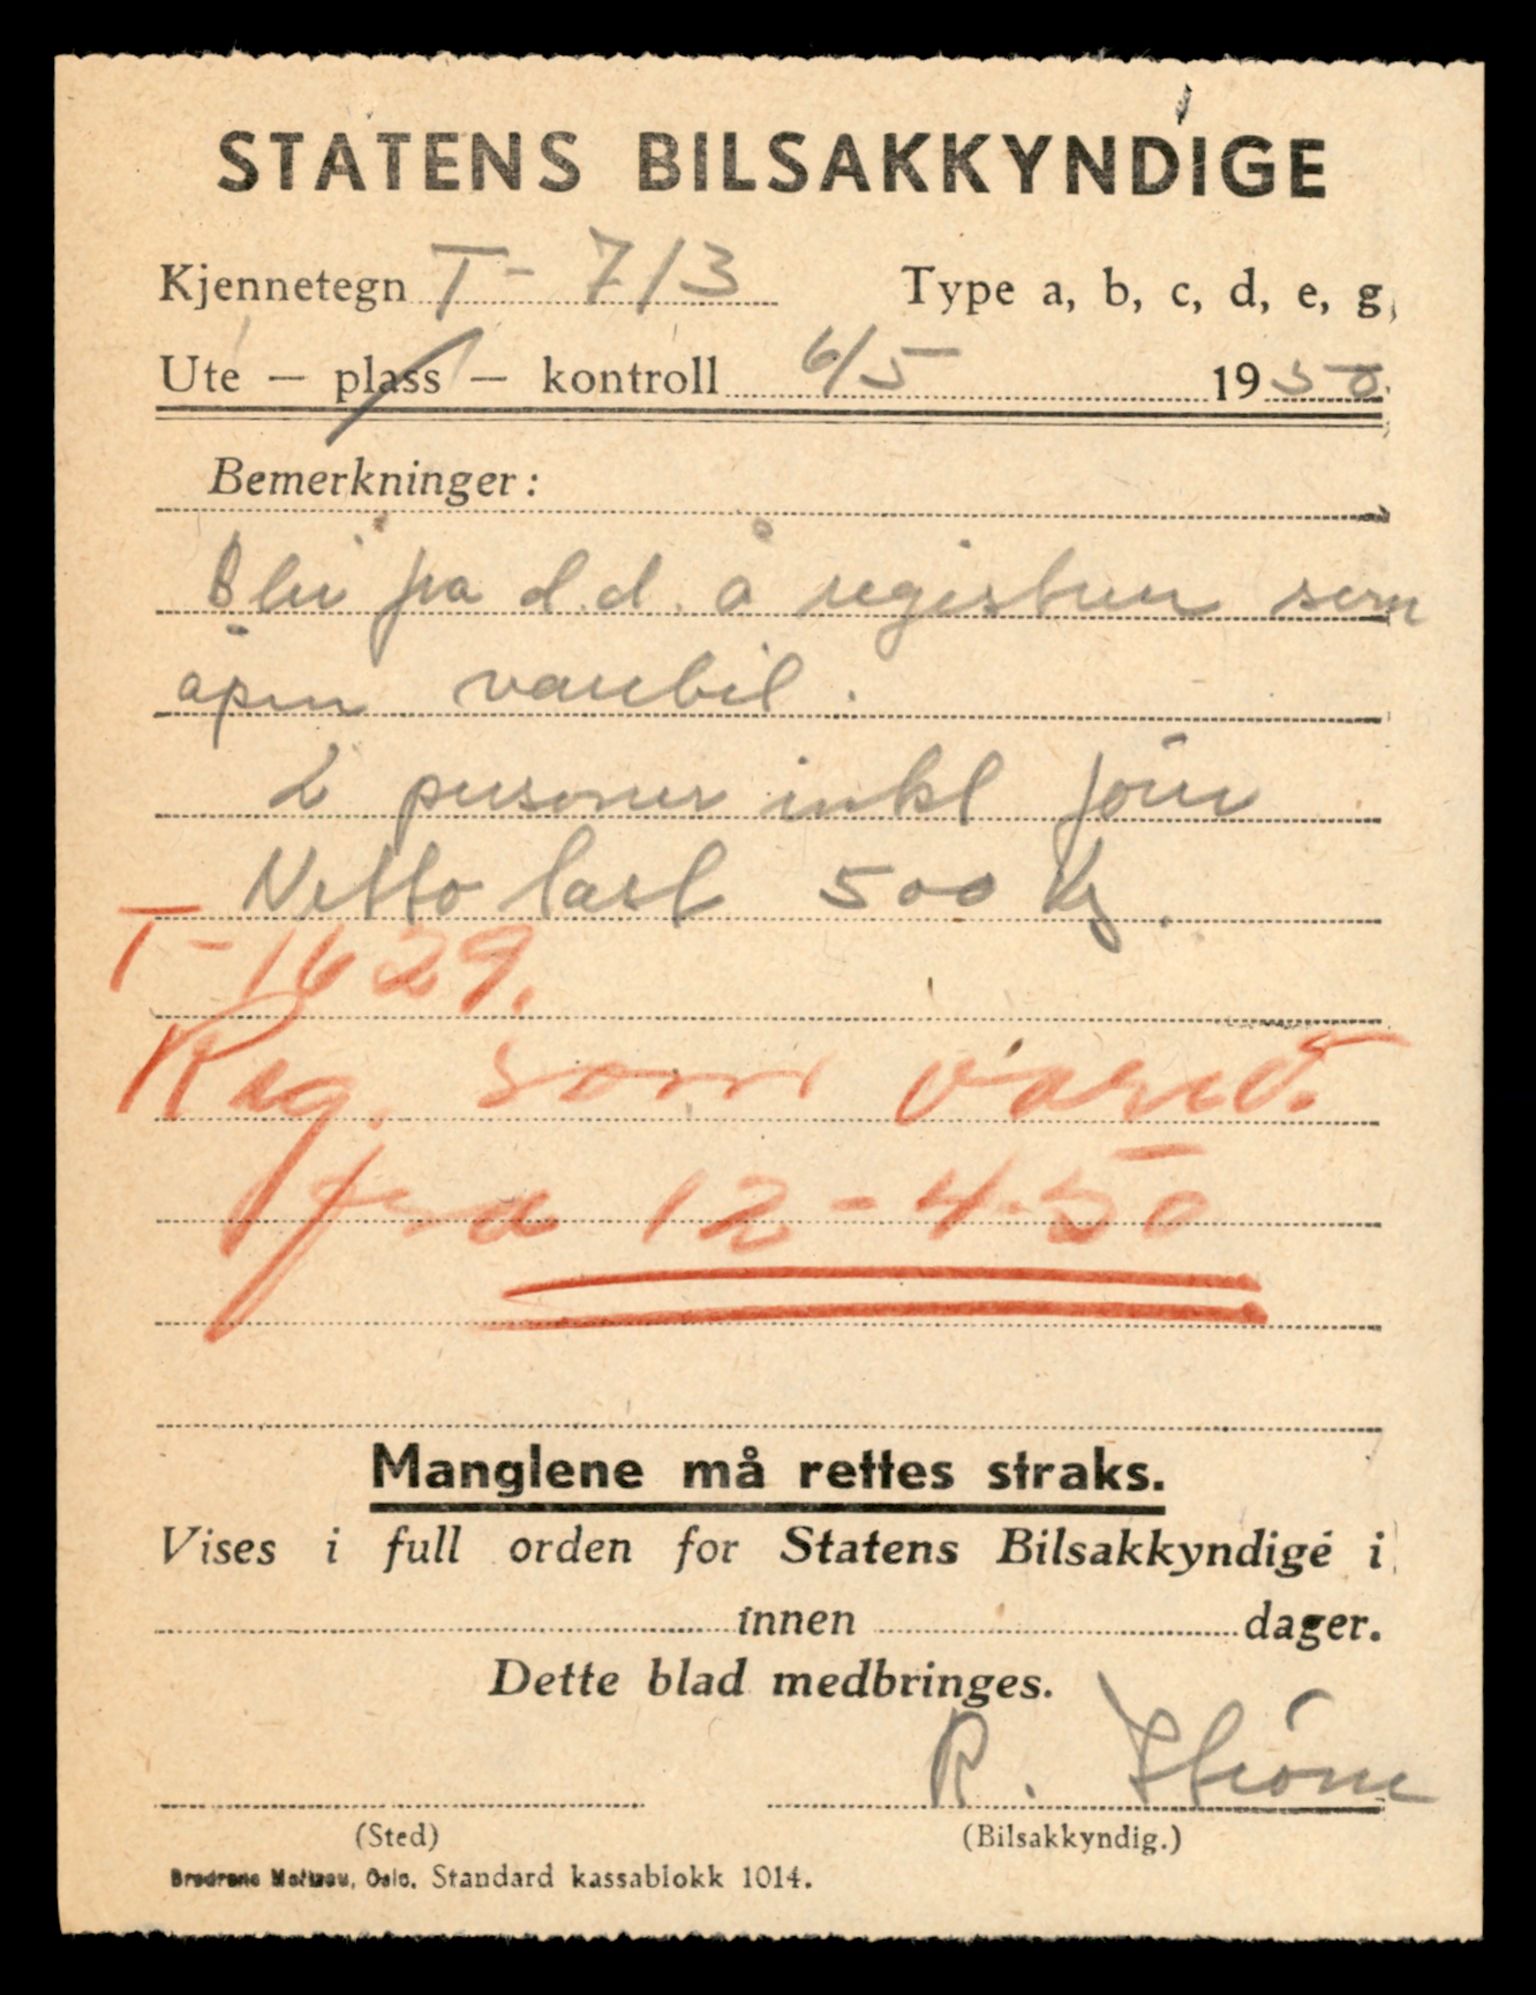 STATENS BILSAKKYNDIGE
Kjennetegn T- 713 Type a, b, c, d, e, g,
Ute — plass — kontroll 6/5 1950
Bemerkninger:
Blir fra d.d. å registrere som
åpen varebil.
2 personer inkl fører
Netto last 500 kg.
T-1629.
Reg. som vareb.
fra 12-4-50
Manglene må rettes straks.
Vises i full orden for Statens Bilsakkyndige i
innen dager.
Dette blad medbringes.
R.
(Sted) (Bilsakkyndig.)
Brødrene Oslo. Standard kassablokk 1014.